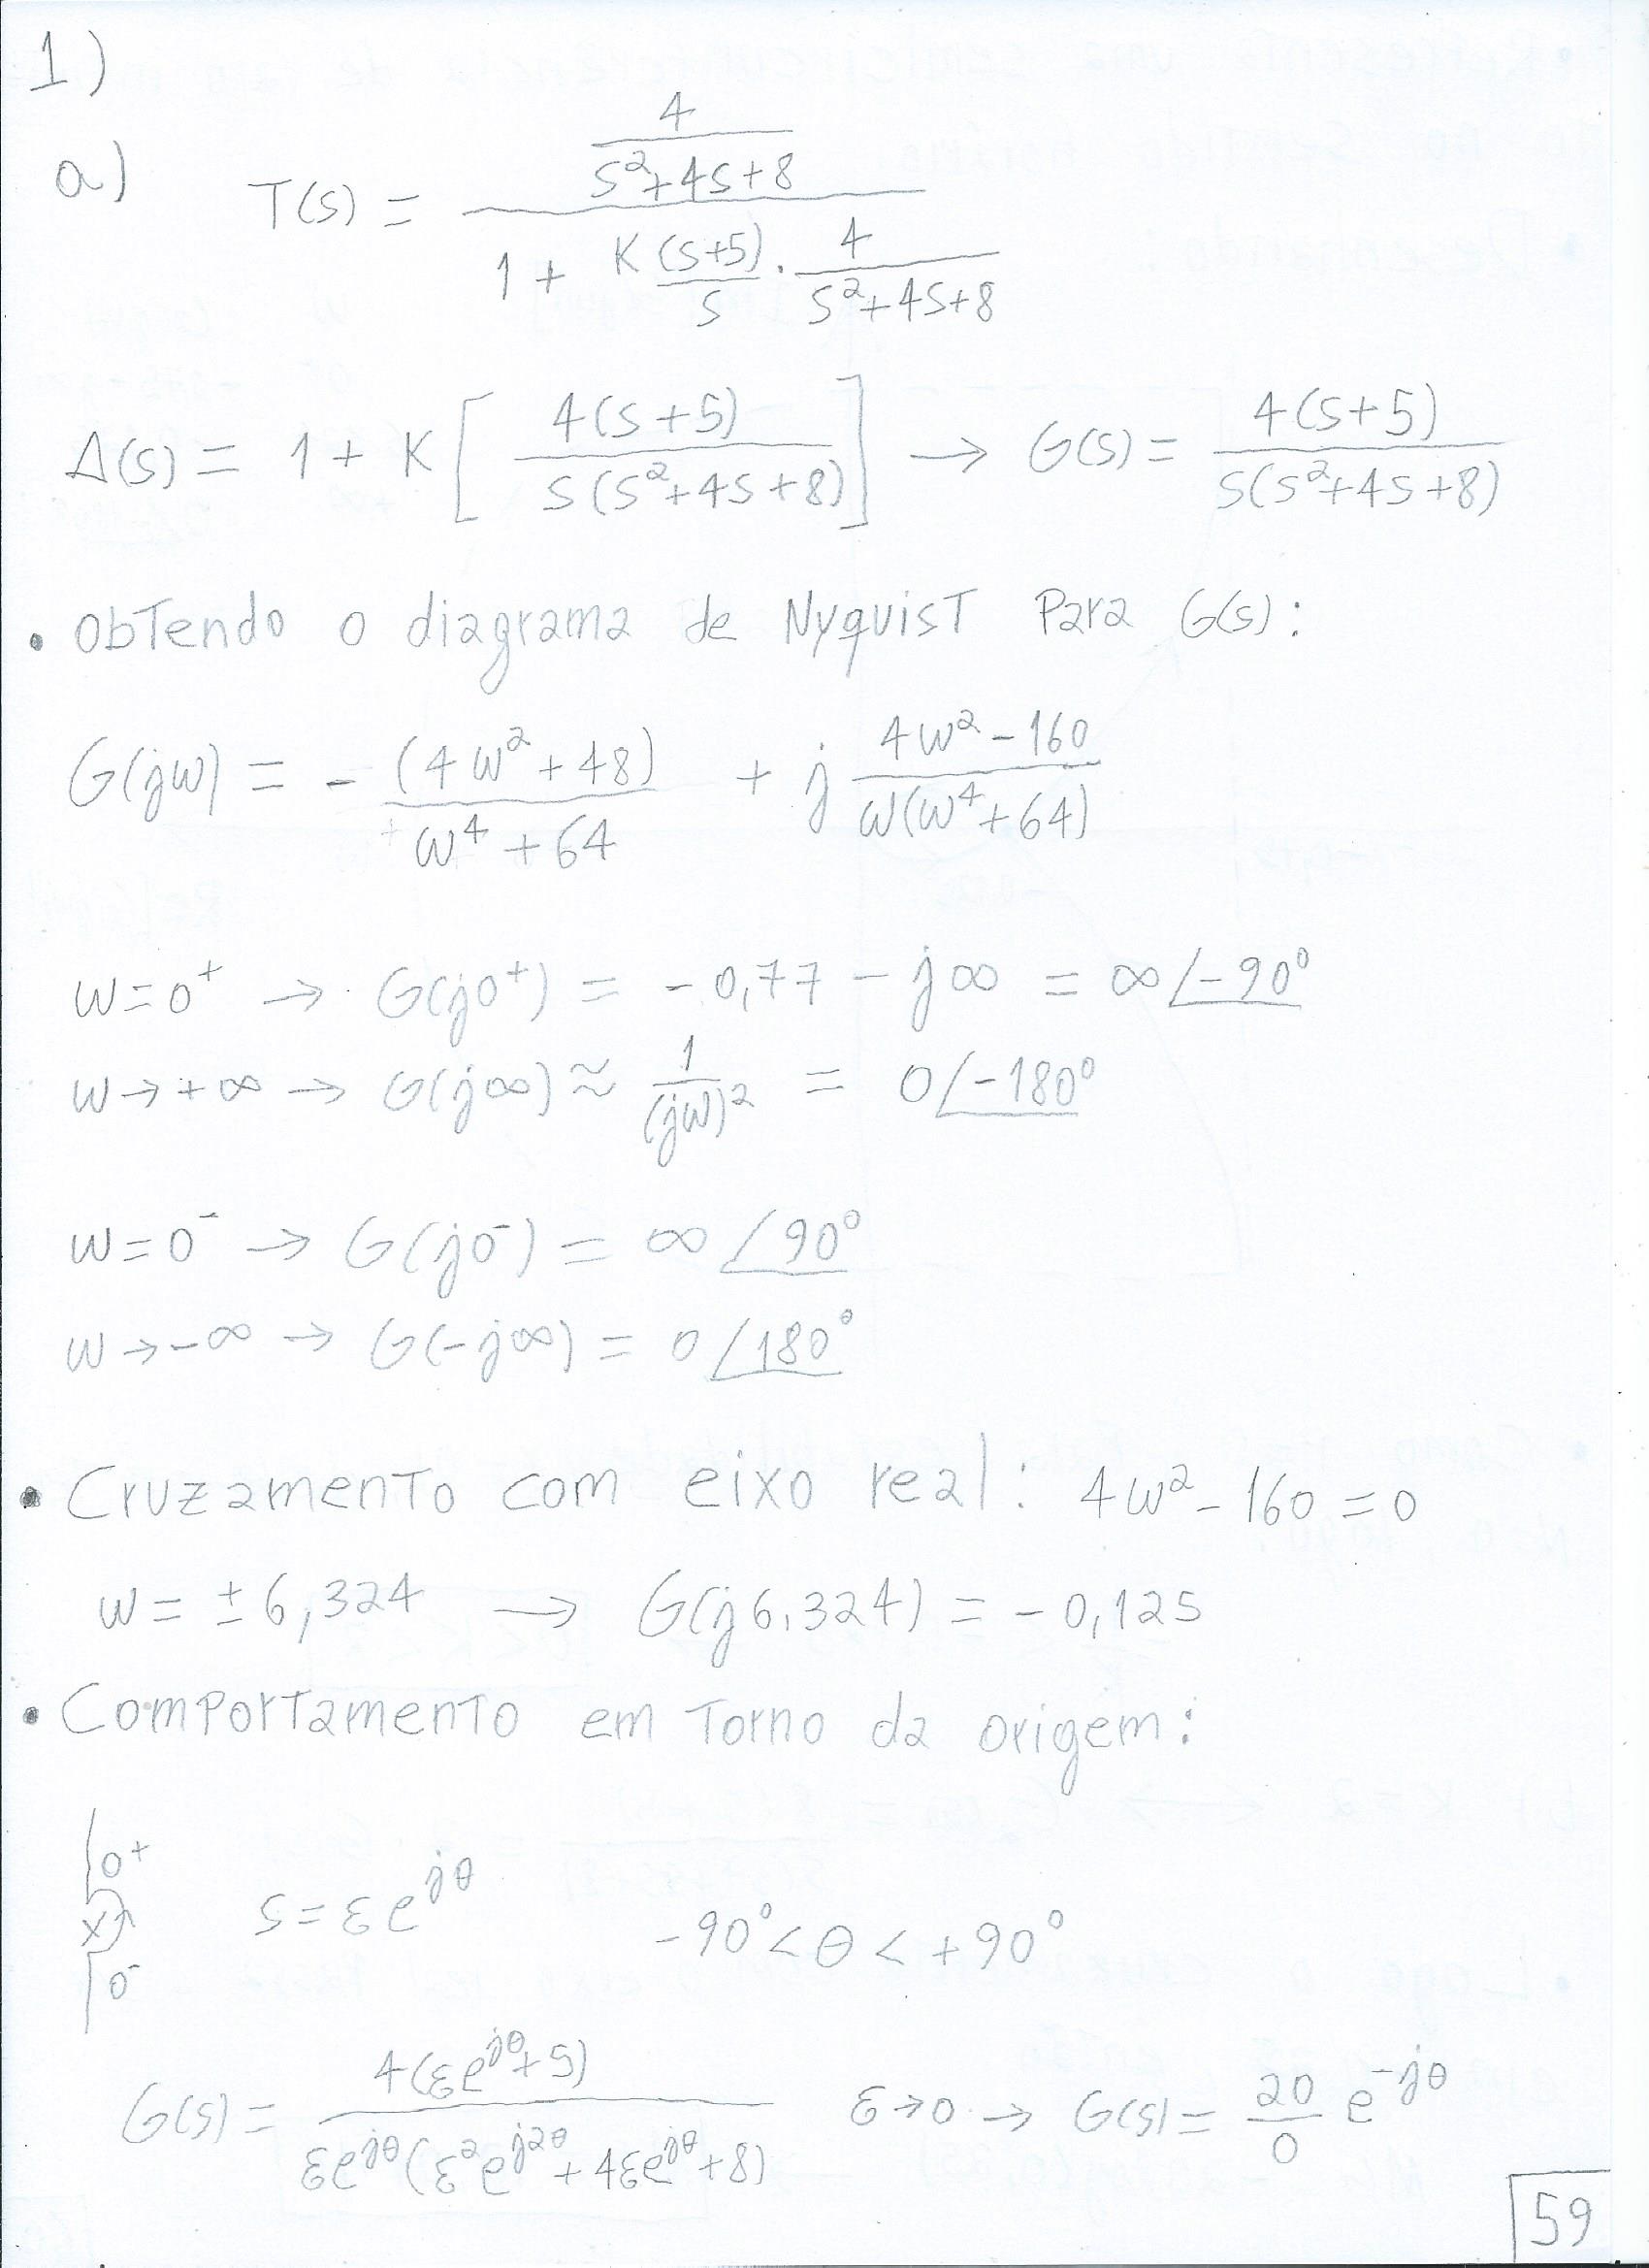 1)
a) T(s) = (4/(s²+4s+8)) / (1 + K(s+5)/s · 4/(s²+4s+8))
Δ(s) = 1 + K [ 4(s+5) / s(s²+4s+8) ] → G(s) = 4(s+5) / s(s²+4s+8)
• Obtendo o diagrama de Nyquist Para G(s):
G(jw) = - (4w²+48) / (w⁴+64) + j (4w²-160) / w(w⁴+64)
w=0⁺ → G(j0⁺) = -0,77 - j∞ = ∞∠-90°
w→+∞ → G(j∞) ≈ 1/(jw)² = 0∠-180°
w=0⁻ → G(j0⁻) = ∞∠90°
w→-∞ → G(-j∞) = 0∠180°
• Cruzamento com eixo real: 4w²-160=0
w = ±6,324 → G(j6,324) = -0,125
• Comportamento em Torno da origem:
0⁺
x
0⁻
s=εe^{jθ} -90°<θ<+90°
G(s) = 4(εe^{jθ}+5) / εe^{jθ}(ε²e^{j2θ}+4εe^{jθ}+8) ε→0 → G(s) = 20/0 e^{-jθ}
59